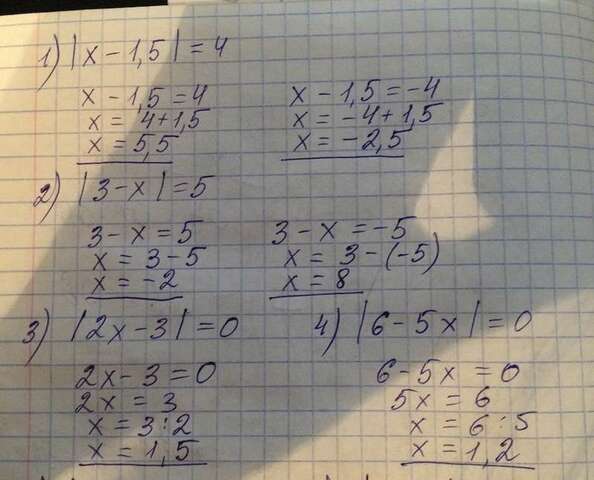 1) |x - 1,5| = 4
x - 1,5 = 4
x = 4 + 1,5
x = 5,5
x - 1,5 = -4
x = -4 + 1,5
x = -2,5
2) |3 - x| = 5
3 - x = 5
x = 3 - 5
x = -2
3 - x = -5
x = 3 - (-5)
x = 8
3) |2x - 3| = 0
2x - 3 = 0
2x = 3
x = 3 : 2
x = 1,5
4) |6 - 5x| = 0
6 - 5x = 0
5x = 6
x = 6 : 5
x = 1,2